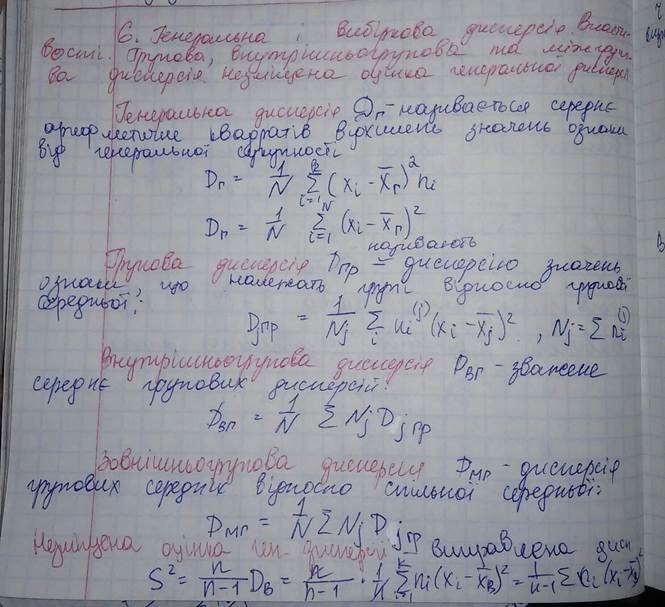 6. Генеральна і вибіркова дисперсія. Власти-
вості. Групова, внутрішньогрупова та міжгрупо-
ва дисперсія. Незміщена оцінка генеральної дисперсії
Генеральна дисперсія Dг - називається середнє
арифметичне квадратів відхилень значень ознаки
від генеральної сукупності
Dг = 1/N Σ(i=1)^k (xi - x̄г)² ni
Dг = 1/N Σ(i=1)^N (xi - x̄г)²
називають
Групова дисперсія Dгр = дисперсією значень
ознаки, що належать групі відносно групової
середньої:
Djгр = 1/Nj Σi ni^(j) (xi - x̄j)², Nj = Σ ni^(j)
Внутрішньогрупова дисперсія Dвг - зважене
середнє групових дисперсій:
Dвг = 1/N Σ Nj Dj гр
Зовнішньогрупова дисперсія Dмг - дисперсія
групових середніх відносно спільної середньої:
Dмг = 1/N Σ Nj Dj гр
Незміщена оцінка ген. дисперсії виправлена дисп
S² = n/(n-1) Dв = n/(n-1) · 1/n Σ(i=1)^k ni (xi - x̄в)² = 1/(n-1) Σ ni (xi - x̄в)²